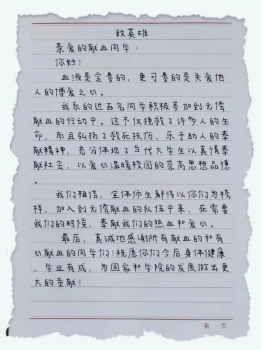 致英雄
亲爱的献血同学:
你好!
血液是宝贵的,更可贵的是关爱他
人的博爱之心。
我系的近百名同学积极参加到无偿
献血的行动中。这不仅挽救了许多人的生
命,而且弘扬了救死扶伤、乐于助人的奉
献精神,充分体现了当代大学生以真情奉
献社会,以爱心温暖校园的崇高思想品德
。
我们相信,全体师生都将以你们为榜
样,加入到无偿献血的队伍中来,在需要
我们的时候,奉献我们的热血和爱心。
最后,真诚地感谢所有献血的和有
心献血的同学们!祝愿你们今后身体健康
,学业有成,为国家和学院的发展做出更
大的贡献!
第 页